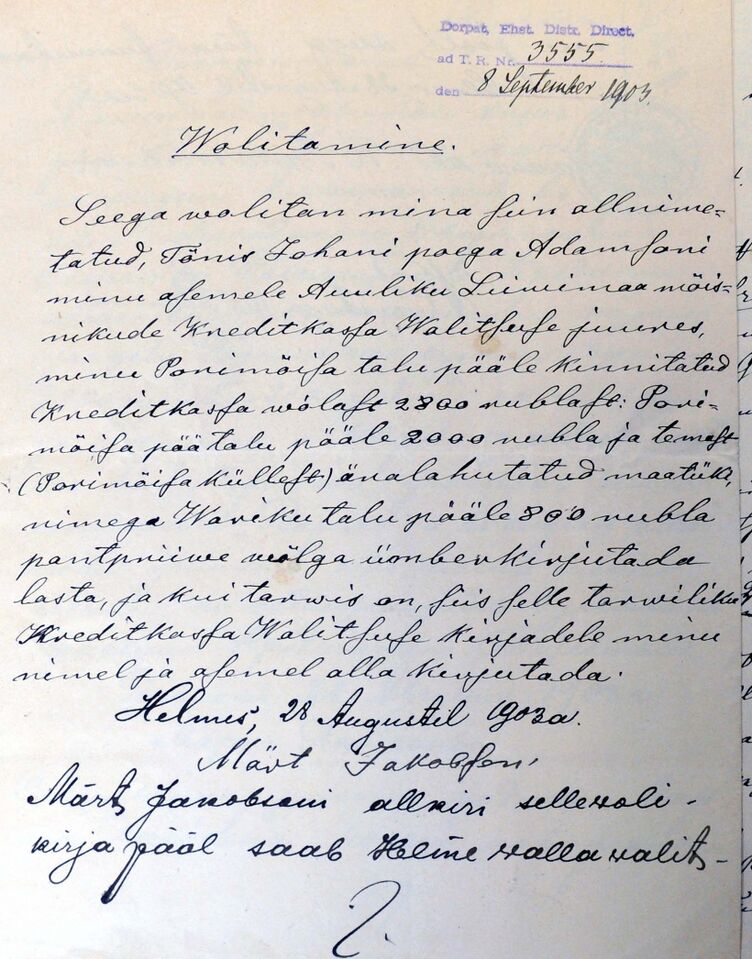 Dorpat, Ehst. Distr. Direct.
ad T. R. Nr. 3555.
den 8 September 1903.
Wolitamine.
Seega wolitan mina siin allnime-
tatud, Tõnis Johani poega Adamsoni
minu asemele Auuliku Liiwimaa mõis-
nikude Kreditkassa Walitsuse juures,
minu Porimõisa talu pääle kinnitatud
Kreditkassa wõlast 2800 rublast: Pori-
mõisa päätalu pääle 2000 rubla ja temast
(Porimõisa küllest) äralahutatud maatüki,
nimega Wariku talu pääle 800 rubla
pantpriiwe wõlga ümberkirjutada
lasta, ja kui tarwis on, siis selle tarwiliku
Kreditkassa Walitsuse kirjadele minu
nimel ja asemel alla kirjutada.
Helmes, 28 Augustil 1903a.
Märt Jakobson,
Märt Jakobsoni allkiri sellewoli-
kirja pääl saab Helme walla walit-